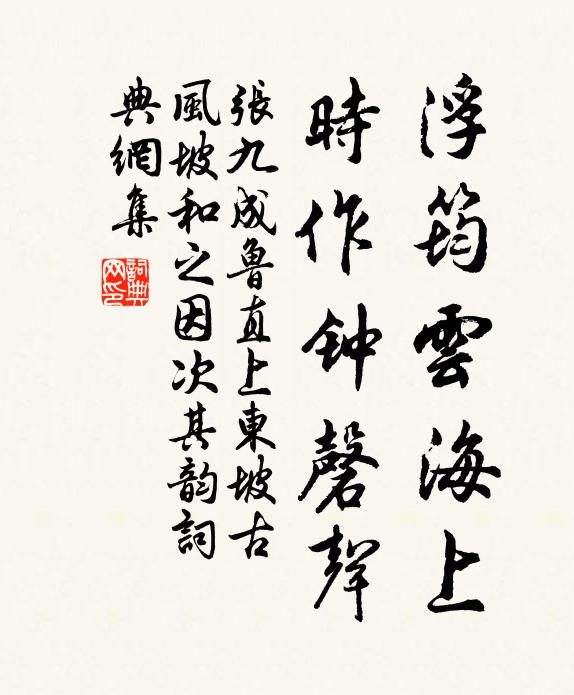 浮筠雲海上
時作钟磬聲
張九成魯直上東坡古
風坡和之因次其韵詞
典網集
詞典网印